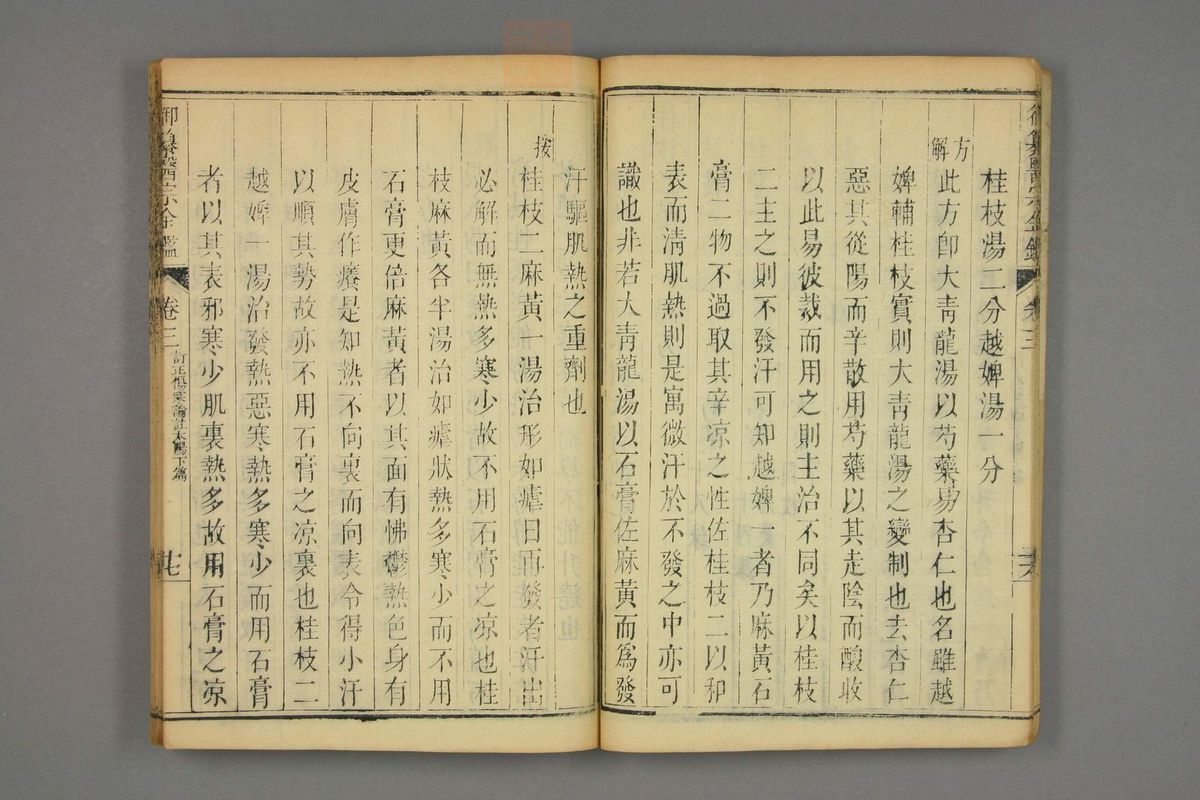 桂枝湯二分越婢湯一分
方解
此方卽大靑龍湯以芍藥易杏仁也名雖越
婢輔桂枝實則大靑龍湯之變制也去杏仁
惡其從陽而辛散用芍藥以其走陰而酸收
以此易彼裁而用之則主治不同矣以桂枝
二主之則不發汗可知越婢一者乃麻黃石
膏二物不過取其辛凉之性佐桂枝二以和
表而淸肌熱則是寓微汗於不發之中亦可
識也非若大靑龍湯以石膏佐麻黃而爲發
汗驅肌熱之重劑也
按
桂枝二麻黃一湯治形如瘧日再發者汗出
必解而無熱多寒少故不用石膏之凉也桂
枝麻黃各半湯治如瘧狀熱多寒少而不用
石膏更倍麻黃者以其面有怫鬱熱色身有
皮膚作癢是知熱不向裏而向表令得小汗
以順其勢故亦不用石膏之凉裏也桂枝二
越婢一湯治發熱惡寒熱多寒少而用石膏
者以其表邪寒少肌裏熱多故用石膏之凉
御纂醫宗金鑑 卷三 訂正傷寒論註太陽下篇 七